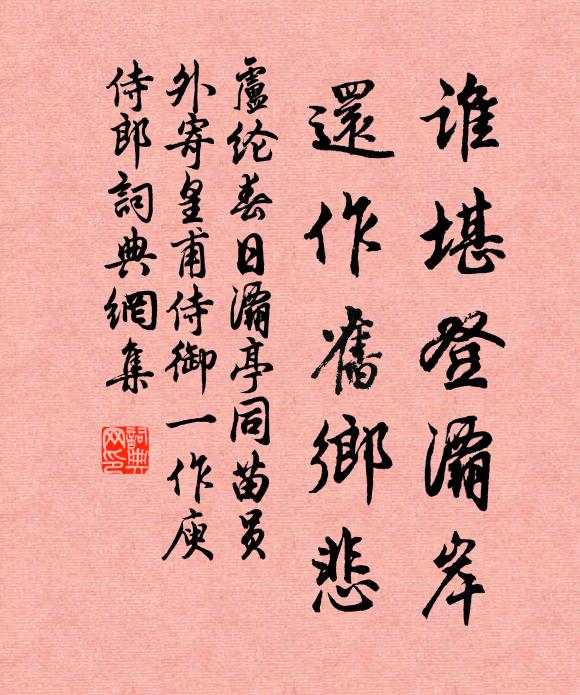 谁堪登灞岸
還作舊鄉悲
盧纶春日灞亭同苗员
外寄皇甫侍御一作庾
侍郎詞典網集
詞典
网印